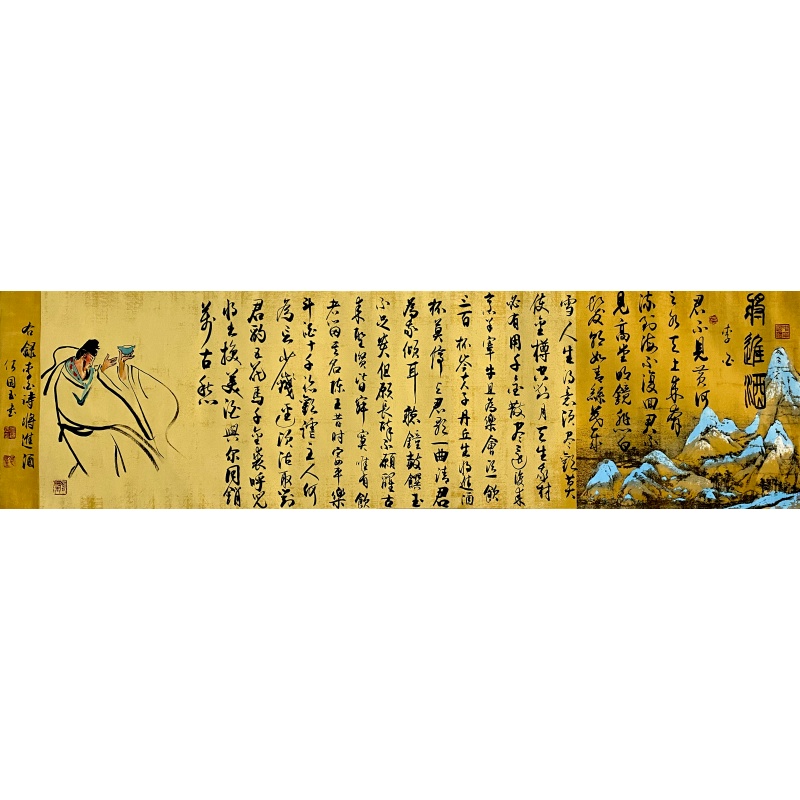 將進酒
李白
君不見黃河
之水天上來奔
流到海不復回君不
見高堂明鏡悲白
髮朝如青絲暮成
雪人生得意須盡歡莫
使金樽空對月天生我材
必有用千金散盡還復來
烹羊宰牛且為樂會須一飲
三百杯岑夫子丹丘生將進酒
杯莫停與君歌一曲請君
為我傾耳聽鐘鼓饌玉
不足貴但願長醉不願醒古
來聖賢皆寂寞惟有飲
者留其名陳王昔時宴平樂
斗酒十千恣歡謔主人何
為言少錢徑須沽取對
君酌五花馬千金裘呼兒
將出換美酒與爾同銷
萬古愁
右錄李白詩將進酒